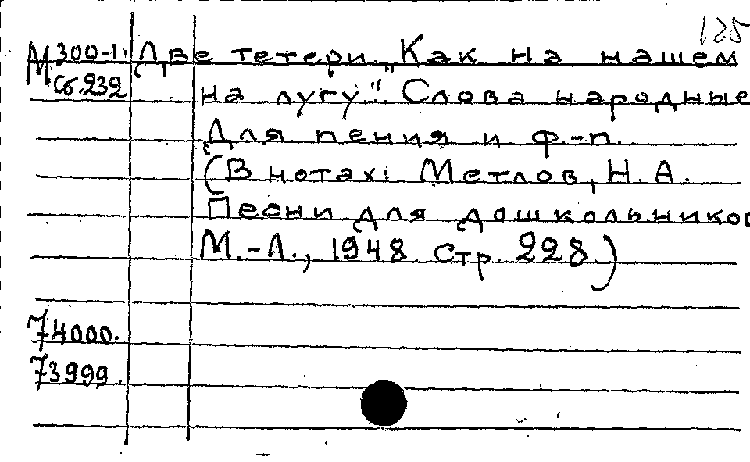 125
М 300-1. Две тетери „Как на нашем
Сб.232 на лугу". Слова народные
Для пения и ф.-п.
(В нотах: Метлов, Н.А.
Песни для дошкольников
М.-Л., 1948 стр. 228.)
74000.
73999.